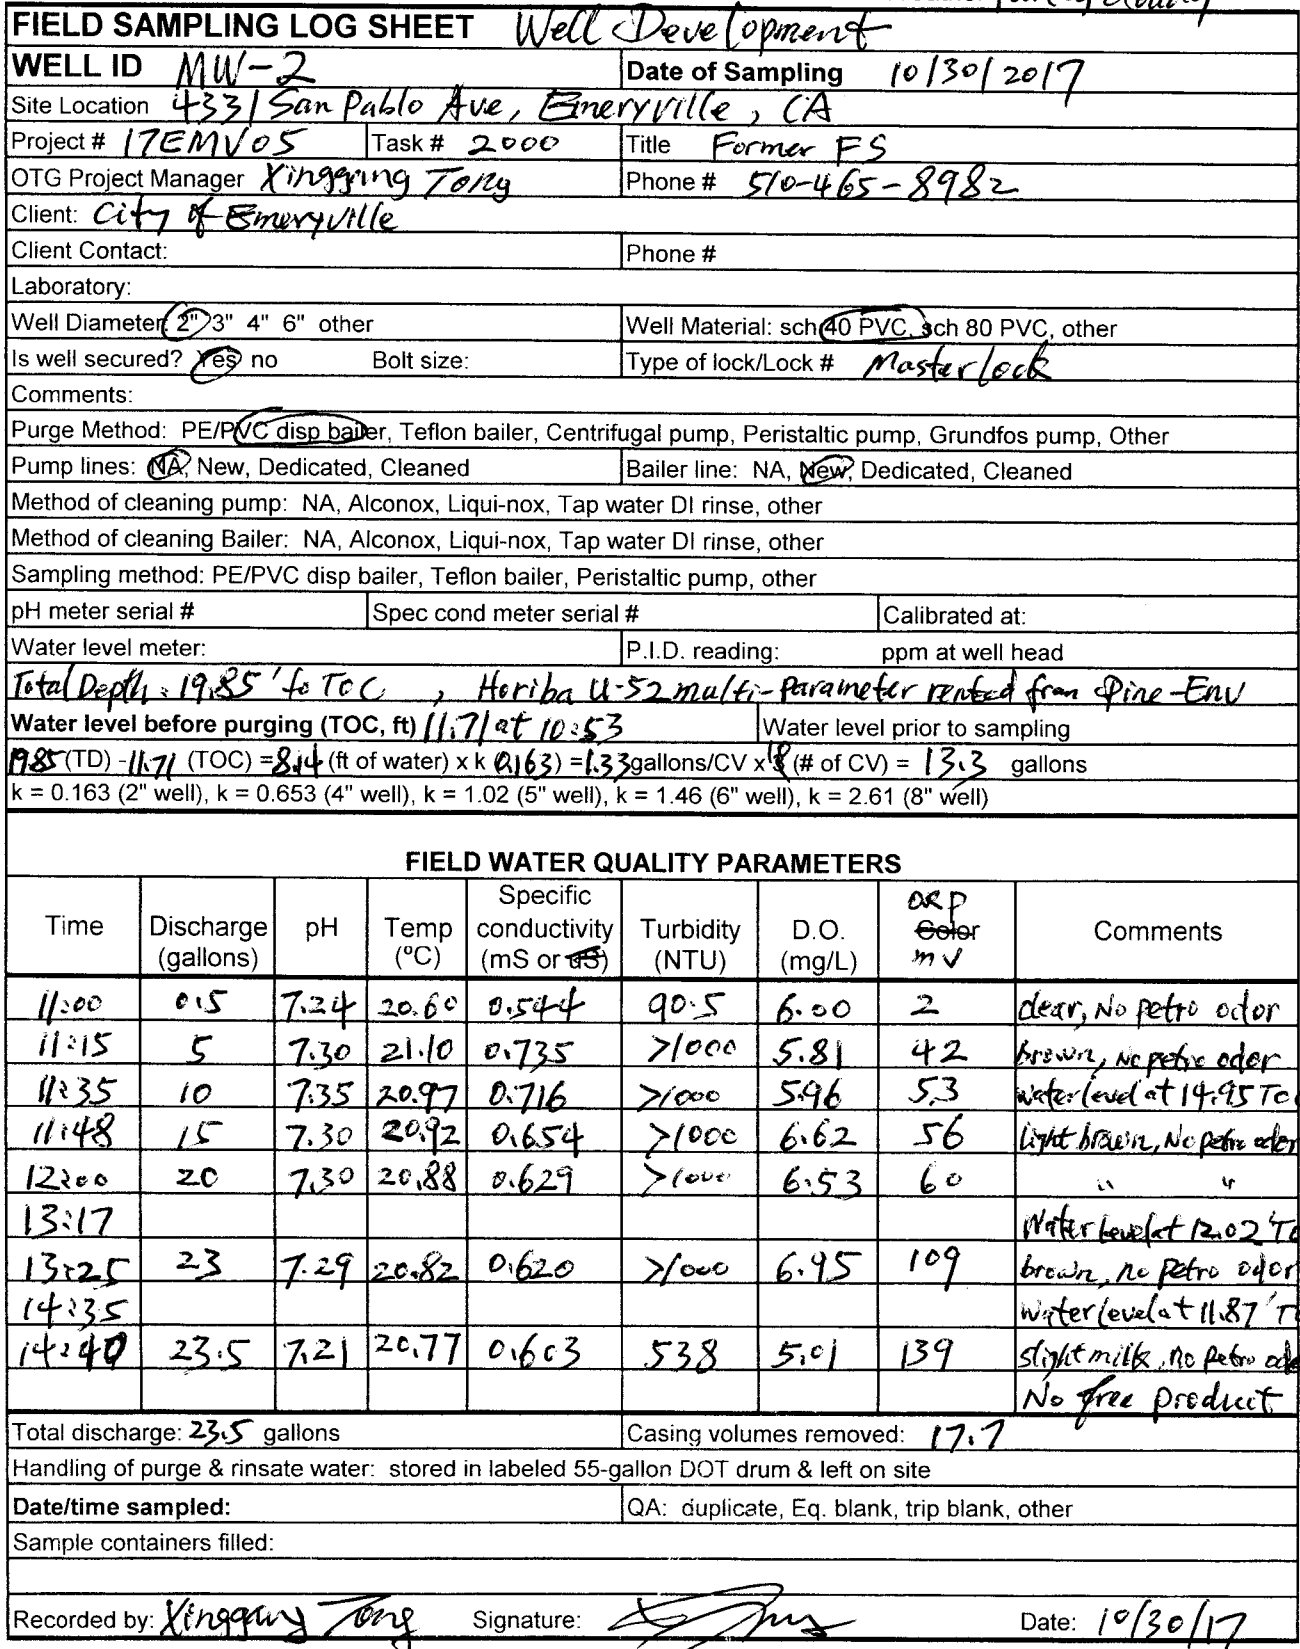 FIELD SAMPLING LOG SHEET Well Development
WELL ID MW-2 Date of Sampling 10/30/2017
Site Location 4331 San Pablo Ave, Emeryville, CA
Project # 17EMV05 Task # 2000 Title Former FS
OTG Project Manager Xinggang Tong Phone # 510-465-8982
Client: City of Emeryville
Client Contact: Phone #
Laboratory:
Well Diameter 2" 3" 4" 6" other Well Material: sch 40 PVC, sch 80 PVC, other
Is well secured? Yes no Bolt size: Type of lock/Lock # Masterlock
Comments:
Purge Method: PE/PVC disp bailer, Teflon bailer, Centrifugal pump, Peristaltic pump, Grundfos pump, Other
Pump lines: NA, New, Dedicated, Cleaned Bailer line: NA, New, Dedicated, Cleaned
Method of cleaning pump: NA, Alconox, Liqui-nox, Tap water DI rinse, other
Method of cleaning Bailer: NA, Alconox, Liqui-nox, Tap water DI rinse, other
Sampling method: PE/PVC disp bailer, Teflon bailer, Peristaltic pump, other
pH meter serial # Spec cond meter serial # Calibrated at:
Water level meter: P.I.D. reading: ppm at well head
Total Depth: 19.85' to TOC, Horiba U-52 multi-parameter rented from Pine-Env
Water level before purging (TOC, ft) 11.71 at 10:53 Water level prior to sampling
19.85 (TD) - 11.71 (TOC) = 8.14 (ft of water) x k (0.163) = 1.33 gallons/CV x (# of CV) = 13.3 gallons
k = 0.163 (2" well), k = 0.653 (4" well), k = 1.02 (5" well), k = 1.46 (6" well), k = 2.61 (8" well)
FIELD WATER QUALITY PARAMETERS
Time Discharge (gallons) pH Temp (ºC) Specific conductivity (mS or uS) Turbidity (NTU) D.O. (mg/L) ORP Color mV Comments
11:00 0.5 7.24 20.60 0.544 90.5 6.00 2 clear, No petro odor
11:15 5 7.30 21.10 0.735 >1000 5.81 42 brown, No petro odor
11:35 10 7.35 20.97 0.716 >1000 5.96 53 water level at 14.95 TOC
11:48 15 7.30 20.92 0.654 >1000 6.62 56 light brown, No petro odor
12:00 20 7.30 20.88 0.629 >1000 6.53 60 " "
13:17 Water level at 12.02 'TO
13:25 23 7.29 20.82 0.620 >1000 6.95 109 brown, no petro odor
14:35 water level at 11.87 'T
14:40 23.5 7.21 20.77 0.603 538 5.01 139 slight milk, no petro odo
No free product
Total discharge: 23.5 gallons Casing volumes removed: 17.7
Handling of purge & rinsate water: stored in labeled 55-gallon DOT drum & left on site
Date/time sampled: QA: duplicate, Eq. blank, trip blank, other
Sample containers filled:
Recorded by: Xinggang Tong Signature: Date: 10/30/17